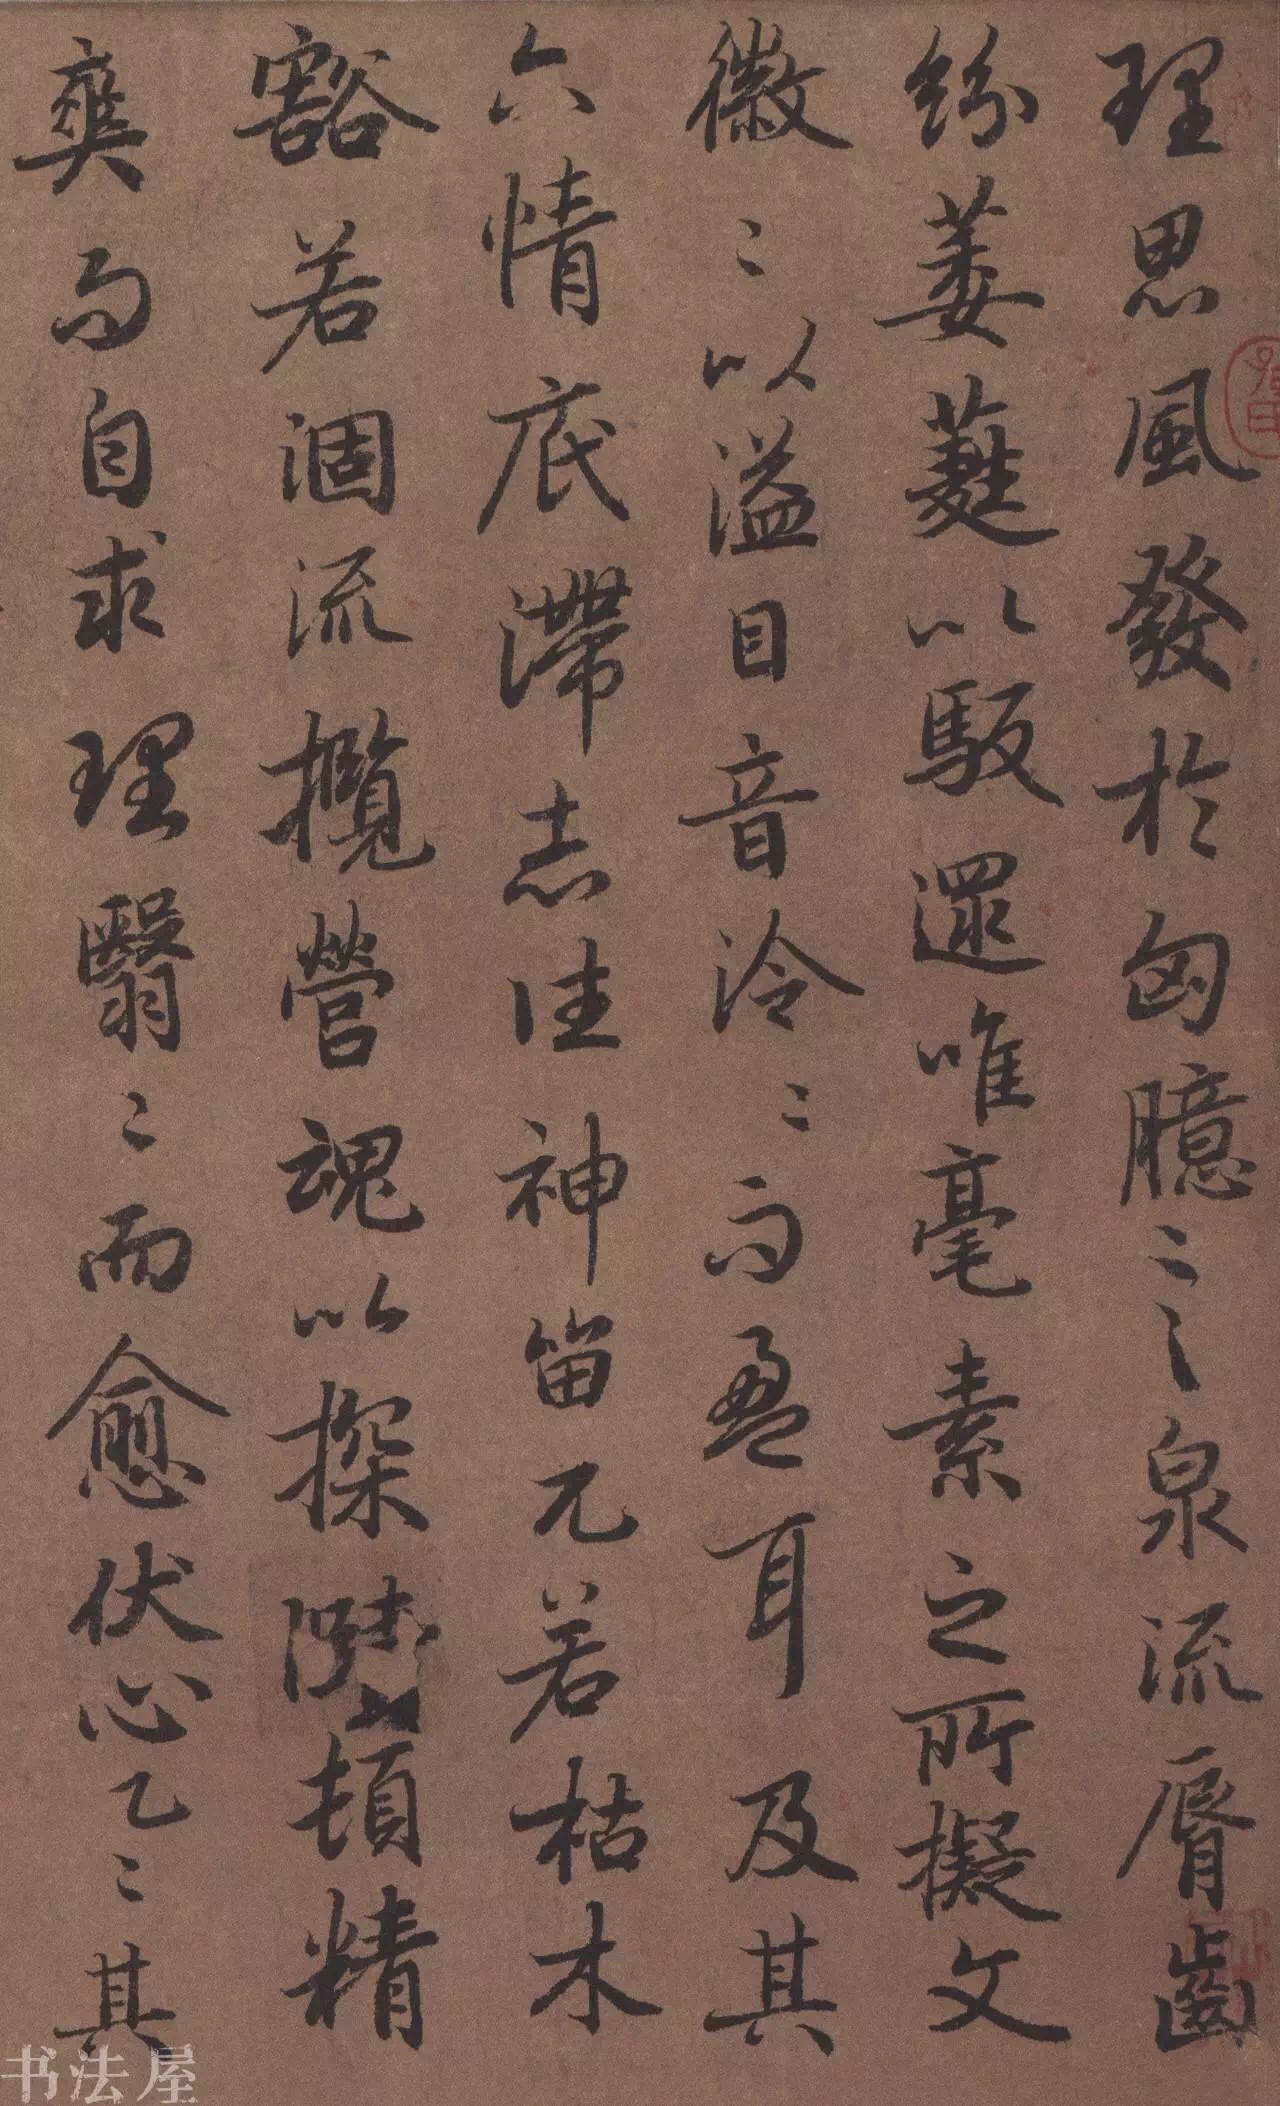 理思風發於匈臆言泉流脣齒
紛萎蕤以馺遝唯毫素之所擬文
徽〻以溢目音泠〻而盈耳及其
六情底滯志往神留兀若枯木
豁若涸流攬營魂以探賾頓精
爽而自求理翳〻而愈伏心乙〻其
书法屋